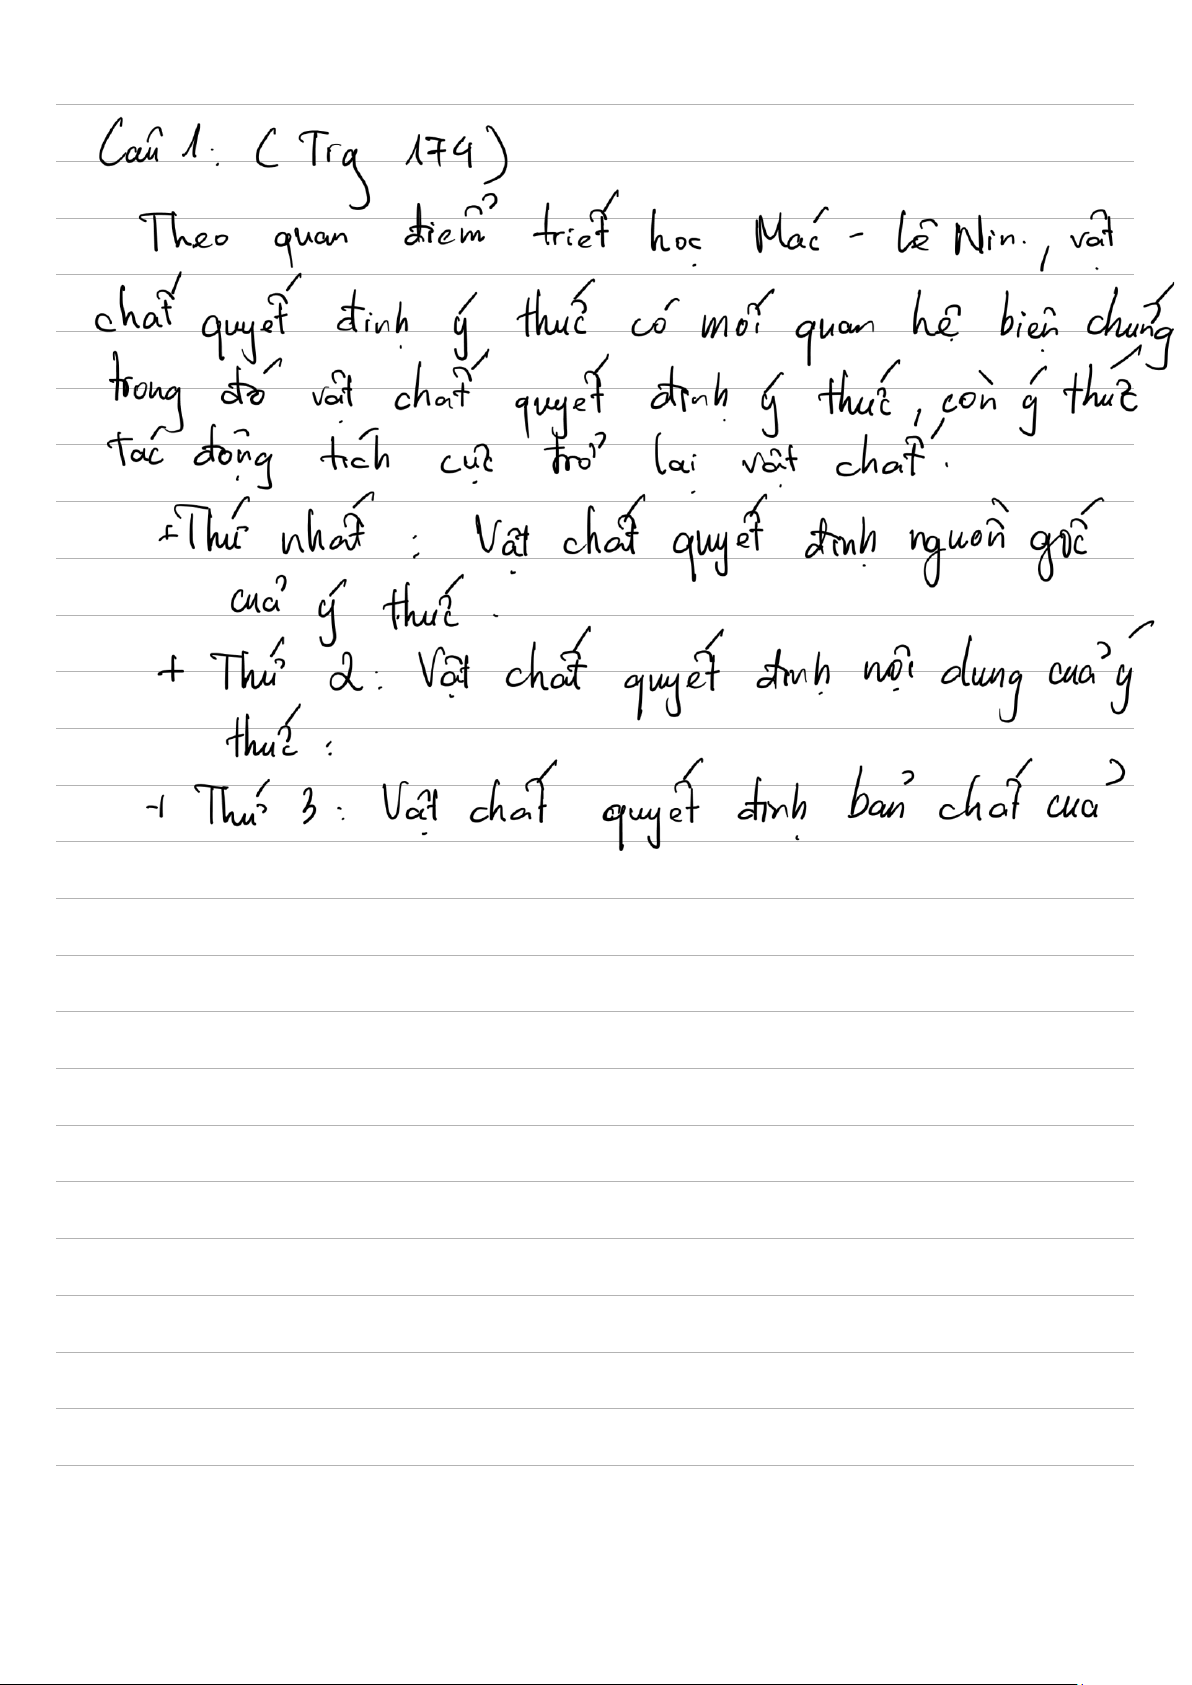 Câu 1: (Trg 174)
Theo quan điểm triết học Mác - Lê Nin, vật
chất quyết định ý thức có mối quan hệ biện chứng
trong đó vật chất quyết định ý thức, còn ý thức
tác động tích cực trở lại vật chất.
+ Thứ nhất : Vật chất quyết định nguồn gốc
của ý thức.
+ Thứ 2: Vật chất quyết định nội dung của ý
thức:
+ Thứ 3: Vật chất quyết định bản chất của